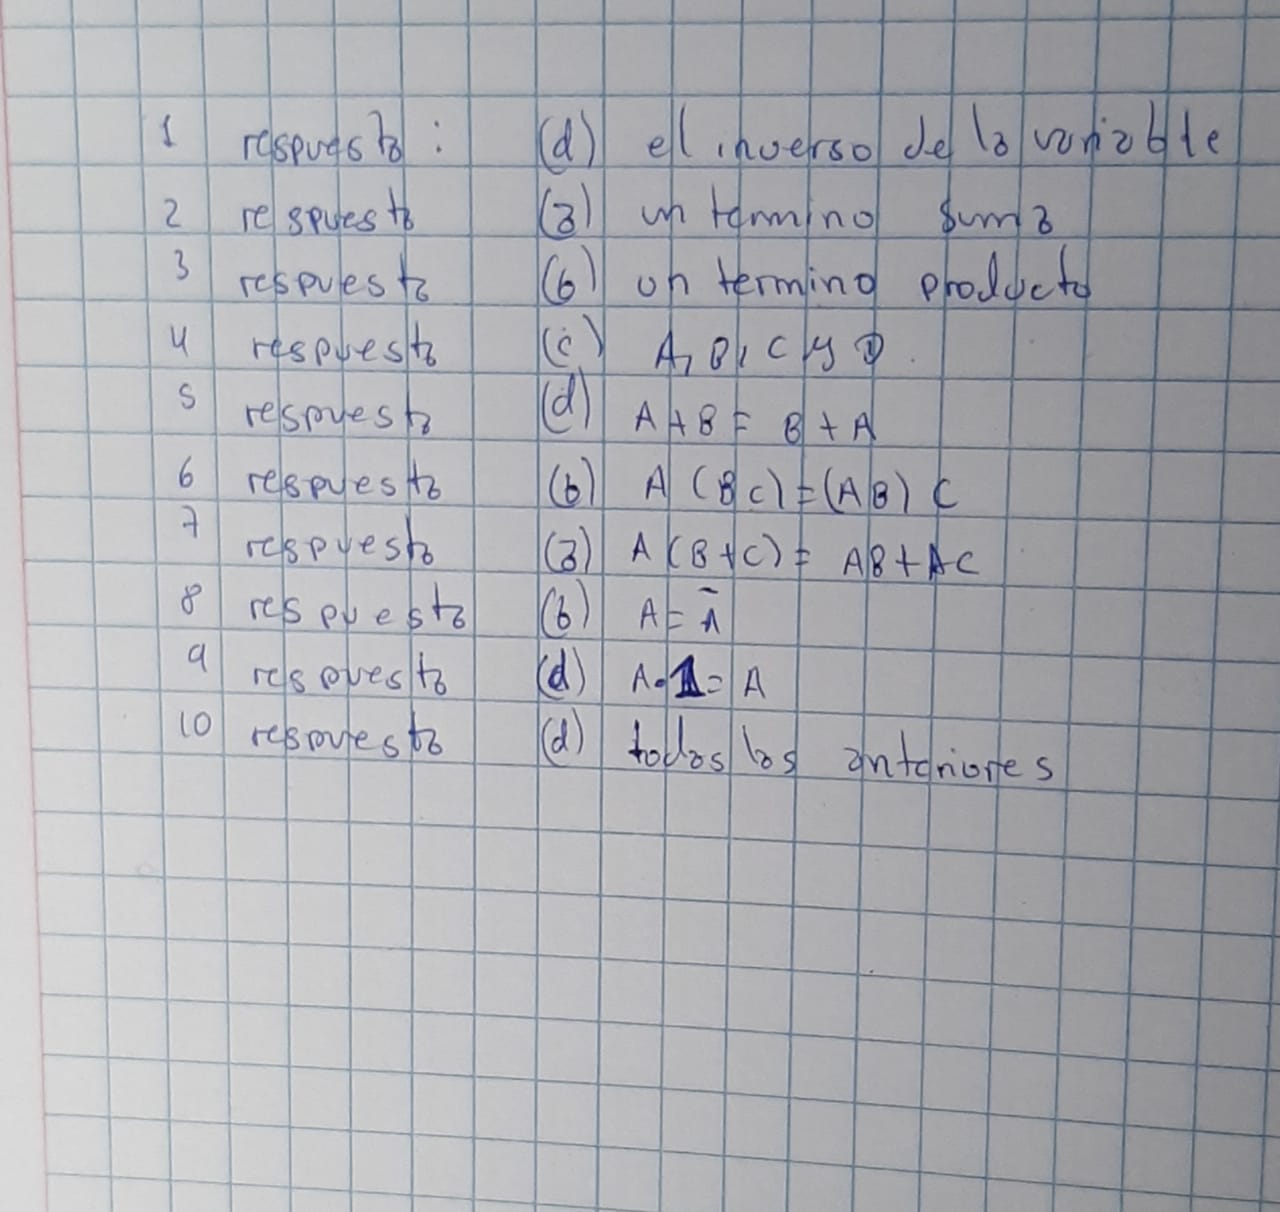 1 respuesta : (d) el inverso de la variable
2 respuesta (a) un termino suma
3 respuesta (b) un termino producto
4 respuesta (c) A, B, C y D.
5 respuesta (d) A+B = B+A
6 respuesta (b) A (BC) = (AB) C
7 respuesta (a) A (B+C) = AB+AC
8 respuesta (b) A = Ā
9 respuesta (d) A•1 = A
10 respuesta (d) todas las anteriores